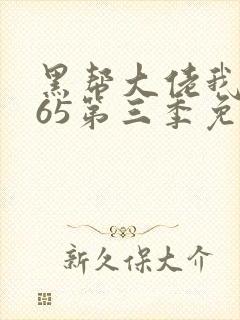 黑帮大佬我
65第三季免
新久保大介